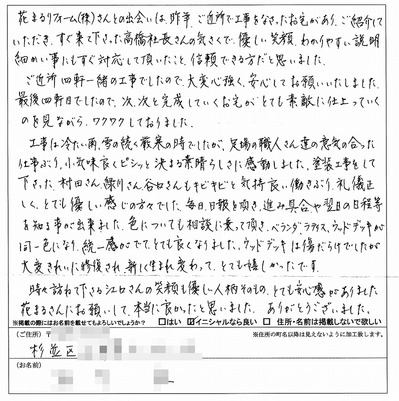 花まるリフォーム(株)さんとの出会いは、昨年、ご近所で工事をなさったお宅があり、ご紹介して
いただき、すぐ来て下さった高橋社長さんの気さくで、優しい笑顔、わかりやすい説明
細かい事にもすぐ対応して頂いたこと、信頼できる方だと思いました。
ご近所四軒一緒の工事でしたので、大変心強く、安心してお願いいたしました。
最後四軒目でしたので、次、次と完成していくお宅がとても素敵に仕上っていく
のを見ながら、ワクワクしておりました。
工事は冷たい雨、雪の続く厳寒の時でしたが、足場の職人さん達の意気の合った
仕事ぶり、小気味良くピシッと決まる素晴らしさに感動しました。塗装工事をして
下さった、村田さん、緑川さん、谷口さんもキビキビと気持良い働きぶり、礼儀正
しく、とても優しい感じの方々でした。毎日、日報を頂き、進み具合や翌日の日程等
を知る事が出来ました。色についても相談に乗って頂き、ベランダ、テラス、ウッドデッキが
同一色になり、統一感がでて、とても良くなりました。ウッドデッキは傷だらけでしたが
大変きれいに修復され、新しく生まれ変わって、とても嬉しかったです。
時々訪ねて下さる さんの笑顔も優しい人柄そのもの、とても安心感がありました
花まるさんにお願いして、本当に良かったと思いました。ありがとうございました。
※掲載の際にはお名前を載せてもよろしいでしょうか? □はい ☑イニシャルなら良い □住所・名前は掲載しないで欲しい
(ご住所) 〒 ※住所の町名以降は見えないように加工致します。
杉並区
(お名前)